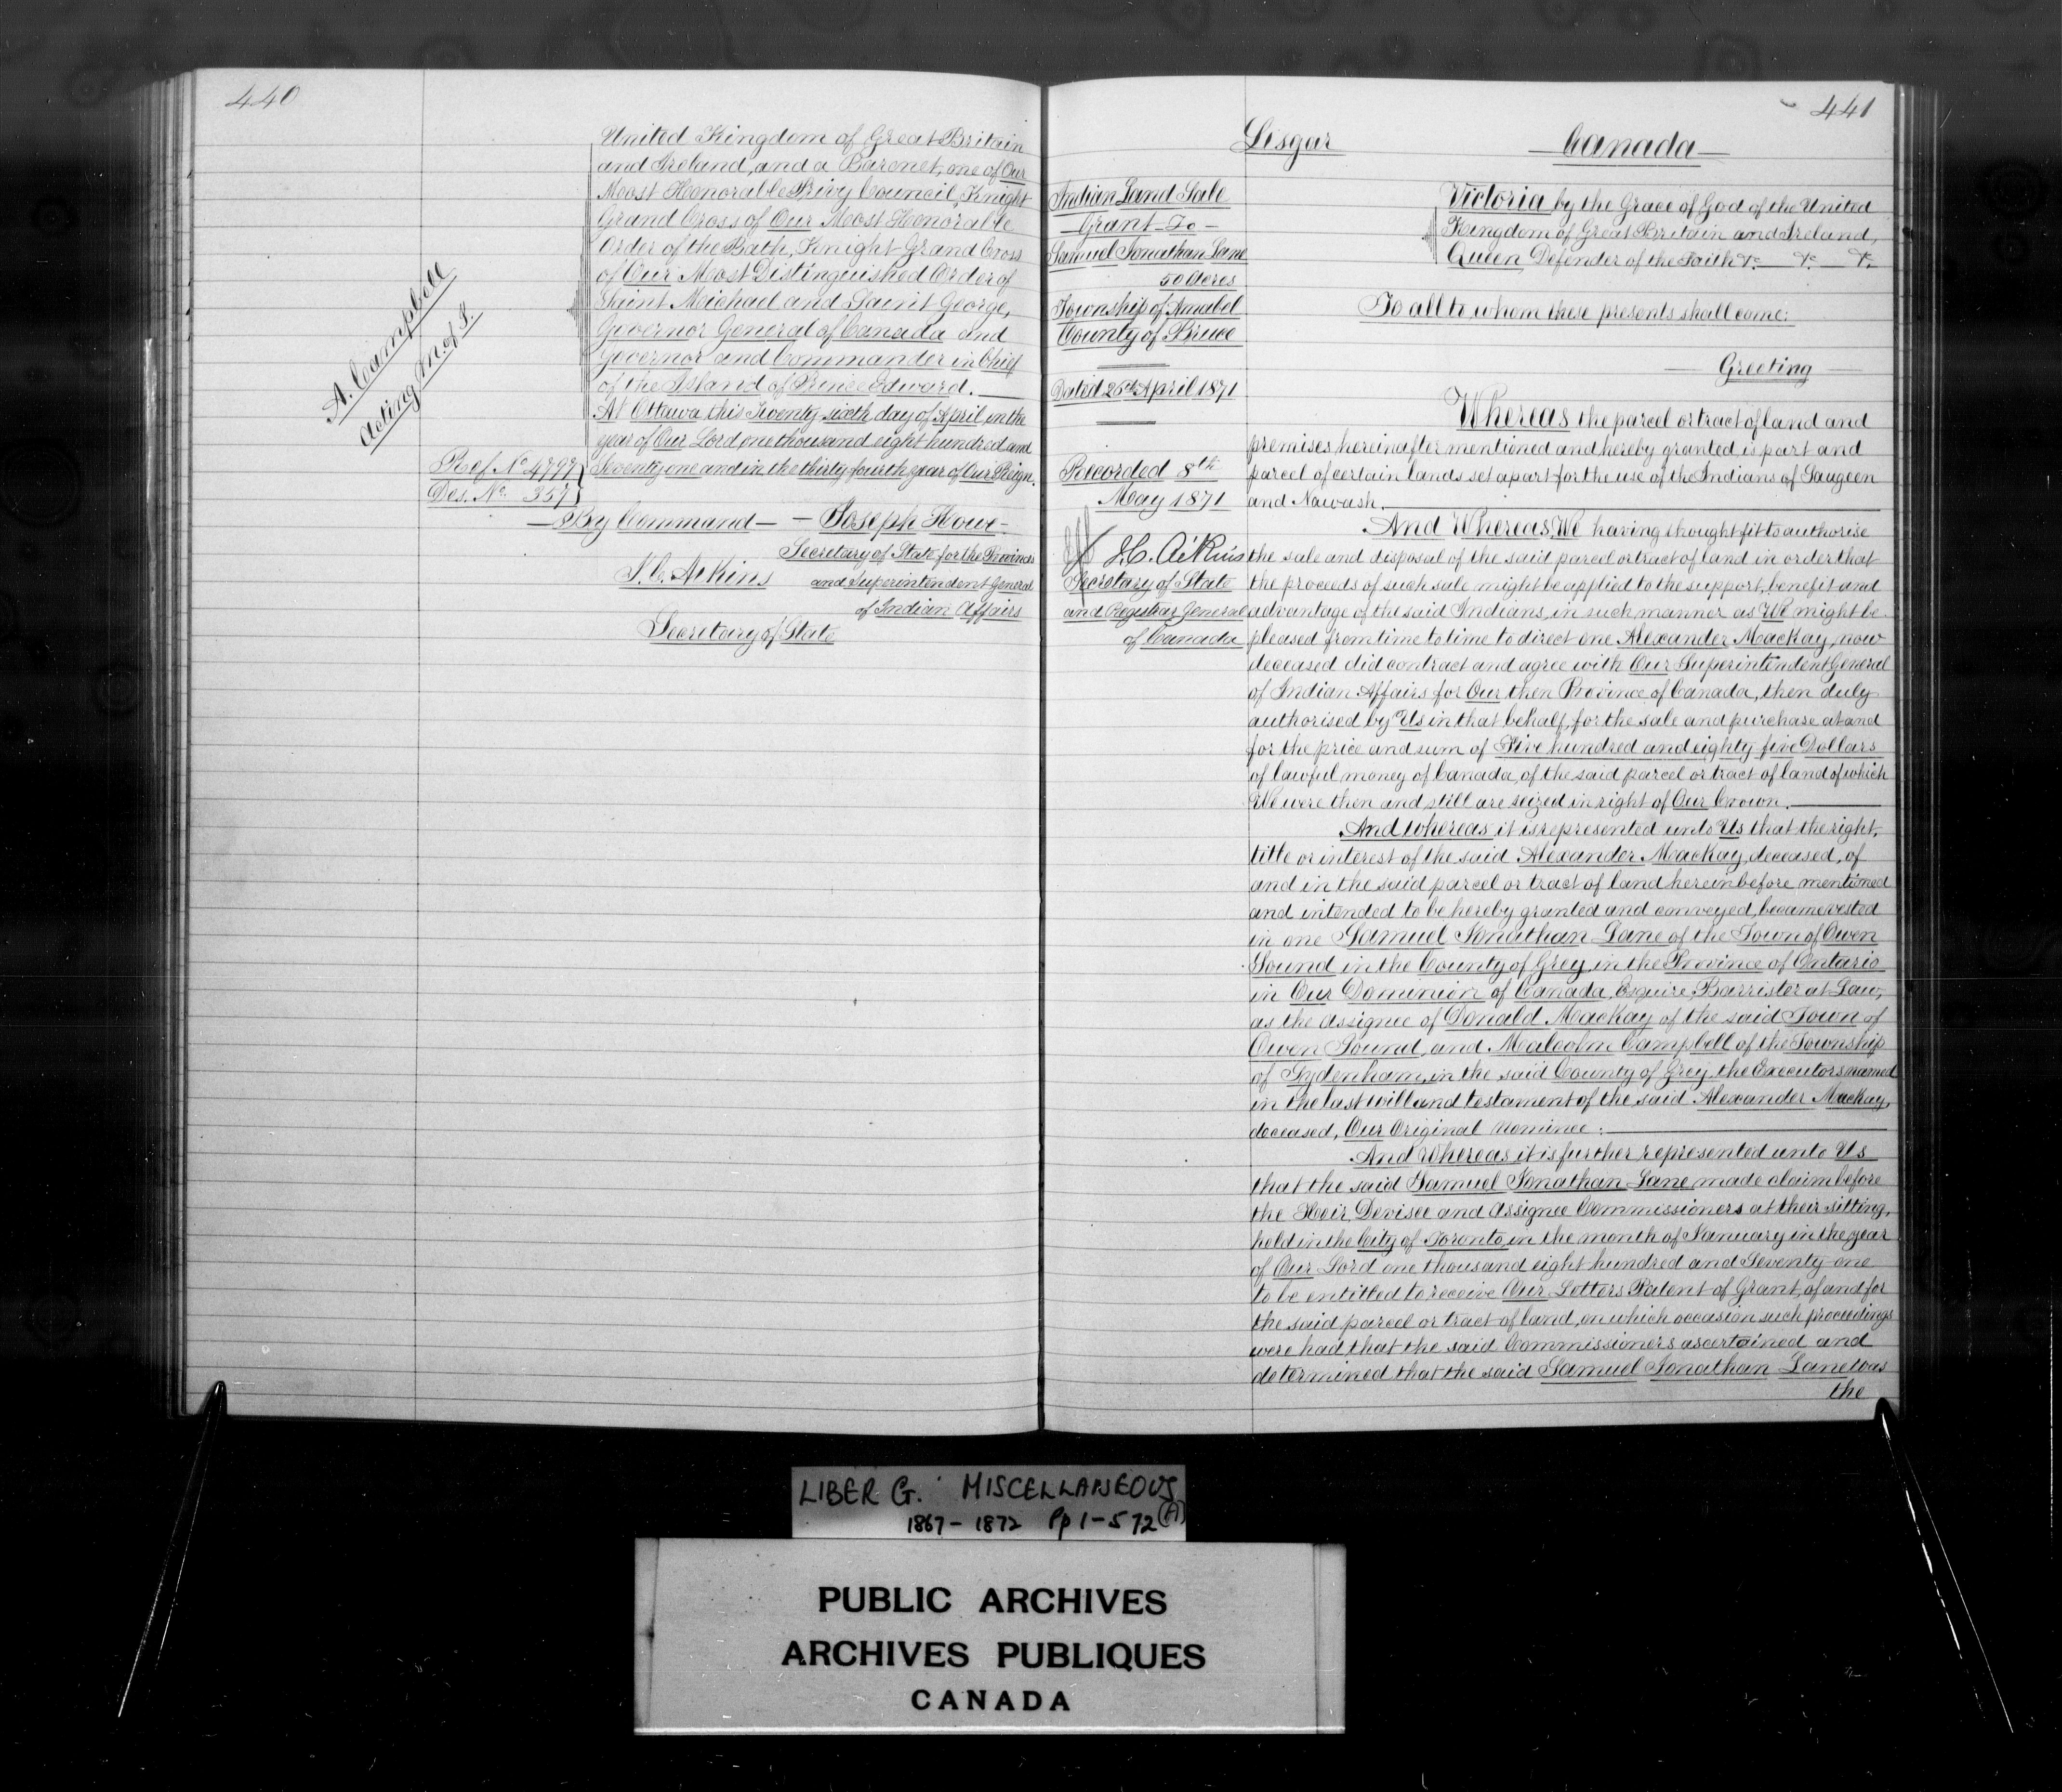 440
United Kingdom of Great Britain
and Ireland, and a Baronet, one of Our
Most Honorable Privy Council, Knight
Grand Cross of Our Most Honorable
Order of the Bath, Knight Grand Cross
of Our Most Distinguished Order of
Saint Michael and Saint George,
Governor General of Canada and
Governor and Commander in Chief
of the Island of Prince Edward.
At Ottawa this Twenty sixth day of April in the
year of Our Lord one thousand eight hundred and
Seventy one and in the thirty fourth year of Our Reign.
A. Campbell
Acting M. of J.
Ref. No 4797
Des. No. 357
By Command
Joseph Howe
Secretary of State for the Provinces
and Superintendent General
of Indian Affairs
J.C. Aikins
Secretary of State
441
Lisgar
Canada
Indian Land Sale
Grant To
Samuel Jonathan Lane
50 Acres
Township of Amabel
County of Bruce
Dated 26th April 1871
Recorded 8th
May 1871
J.C. Aikins
Secretary of State
and Registrar General
of Canada
Victoria by the Grace of God of the United
Kingdom of Great Britain and Ireland,
Queen, Defender of the Faith &c. &c. &c.
To all to whom these presents shall come:
Greeting
Whereas the parcel or tract of land and
premises hereinafter mentioned and hereby granted is part and
parcel of certain lands set apart for the use of the Indians of Saugeen
and Nawash.
And Whereas, We having thought fit to authorise
the sale and disposal of the said parcel or tract of land in order that
the proceeds of such sale might be applied to the support, benefit and
advantage of the said Indians, in such manner as We might be
pleased from time to time to direct one Alexander MacKay, now
deceased did contract and agree with Our Superintendent General
of Indian Affairs for Our then Province of Canada, then duly
authorised by Us in that behalf, for the sale and purchase at and
for the price and sum of Five hundred and eighty five Dollars
of lawful money of Canada, of the said parcel or tract of land of which
We were then and still are seized in right of Our Crown.
And whereas it is represented unto Us that the right,
title or interest of the said Alexander MacKay, deceased, of
and in the said parcel or tract of land hereinbefore mentioned
and intended to be hereby granted and conveyed, became vested
in one Samuel Jonathan Lane of the Town of Owen
Sound in the County of Grey, in the Province of Ontario
in Our Dominion of Canada, Esquire, Barrister at Law,
as the Assignee of Donald MacKay of the said Town of
Owen Sound, and Malcolm Campbell of the Township
of Sydenham, in the said County of Grey, the Executors named
in the last will and testament of the said Alexander MacKay,
deceased, Our Original Nominee:
And whereas it is further represented unto Us
that the said Samuel Jonathan Lane, made claim before
the Heir, Devisee and Assignee Commissioners at their sitting,
held in the City of Toronto, in the month of January in the year
of Our Lord one thousand eight hundred and Seventy one
to be entitled to receive Our Letters Patent of Grant, of and for
the said parcel or tract of land, on which occasion such proceedings
were had that the said Commissioners ascertained and
determined that the said Samuel Jonathan Lane was
the
LIBER G. MISCELLANEOUS
1867 - 1872 Pp 1-572 (A)
PUBLIC ARCHIVES
ARCHIVES PUBLIQUES
CANADA